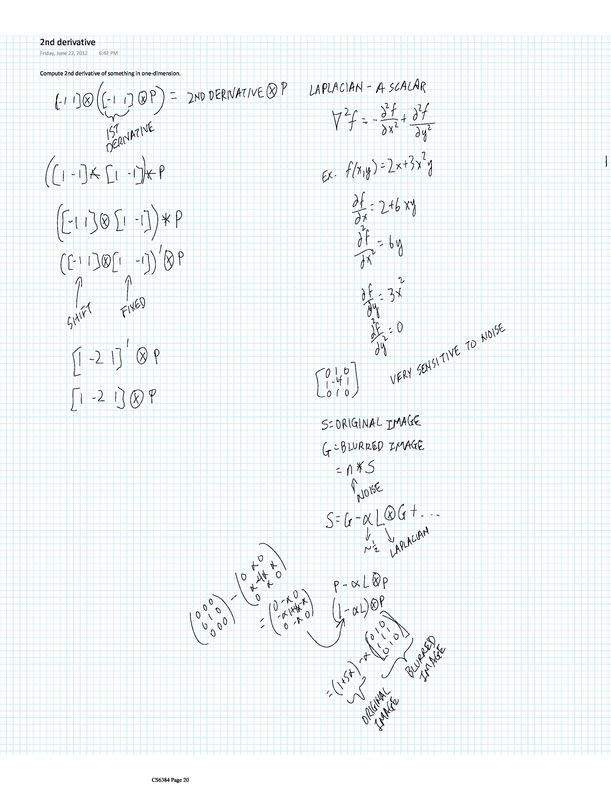 2nd derivative
Friday, June 22, 2012 6:42 PM
Compute 2nd derivative of something in one-dimension.
[-1 1]⊗([-1 1]⊗P) = 2ND DERIVATIVE⊗P
1ST
DERIVATIVE
([1 -1]*[1 -1])*P
([-1 1]⊗[1 -1])*P
([-1 1]⊗[1 -1])'⊗P
SHIFT FIXED
[1 -2 1]'⊗P
[1 -2 1]⊗P
LAPLACIAN - A SCALAR
∇²f = -∂²f/∂x² + ∂²f/∂y²
EX. f(x,y)=2x+3x²y
∂f/∂x = 2+6xy
∂²f/∂x² = 6y
∂f/∂y = 3x²
∂²f/∂y² = 0
[0 1 0
1 -4 1
0 1 0]
VERY SENSITIVE TO NOISE
S=ORIGINAL IMAGE
G=BLURRED IMAGE
= n*S
NOISE
S=G-αL⊗G+...
~½ LAPLACIAN
(0 0 0
0 1 0
0 0 0)
-
(0 α 0
α -4α α
0 α 0)
=
(0 -α 0
-α 1+4α -α
0 -α 0)
P-αL⊗P
(1-αL)⊗P
=(1+5α)-α
(0 1 0
1 1 1
0 1 0)
ORIGINAL
IMAGE
BLURRED
IMAGE
CS6384 Page 20